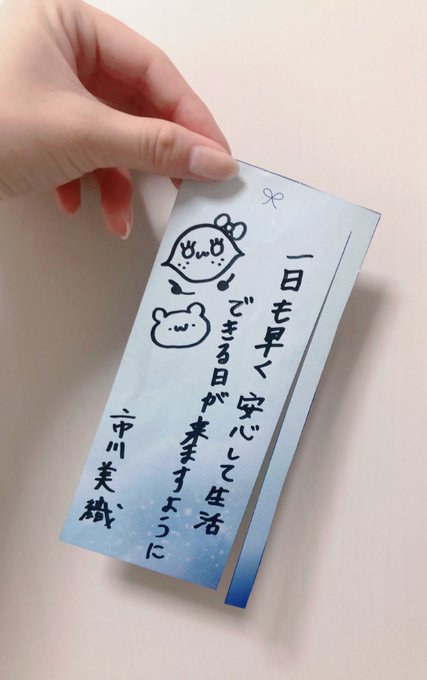 一日も早く安心して生活
できる日が来ますように
市川美織